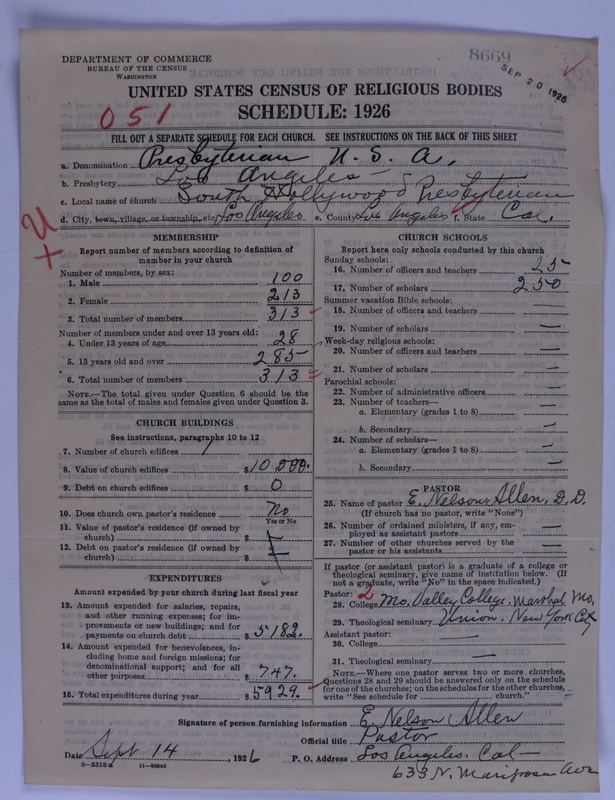 DEPARTMENT OF COMMERCE
BUREAU OF THE CENSUS
WASHINGTON
8669
SEP 20 1926
UNITED STATES CENSUS OF RELIGIOUS BODIES
051
SCHEDULE: 1926
FILL OUT A SEPARATE SCHEDULE FOR EACH CHURCH. SEE INSTRUCTIONS ON THE BACK OF THIS SHEET
a. Denomination Presbyterian U. S. A.
b. Presbytery Los Angeles
c. Local name of church South Hollywood Presbyterian
d. City, town, village, or township, etc. Los Angeles e. County Los Angeles f. State Cal.
MEMBERSHIP
Report number of members according to definition of
member in your church
Number of members, by sex:
1. Male 100
2. Female 213
3. Total number of members 313
Number of members under and over 13 years old:
4. Under 13 years of age 28
5. 13 years old and over 285
6. Total number of members 313
NOTE.—The total given under Question 6 should be
same as the total of males and females given under Question 3.
CHURCH BUILDINGS
See instructions, paragraphs 10 to 12
7. Number of church edifices 1
8. Value of church edifices $10,000.
9. Debt on church edifices $ 0
10. Does church own pastor's residence? No
Yes or No
11. Value of pastor's residence (if owned by
church) $
12. Debt on pastor's residence (if owned by
church) $
EXPENDITURES
Amount expended by your church during last fiscal year
13. Amount expended for salaries, repairs,
and other running expenses; for im-
provements or new buildings; and for
payments on church debt $5182.
14. Amount expended for benevolences, in-
cluding home and foreign missions; for
denominational support; and for all
other purposes $747.
15. Total expenditures during year $5929.
CHURCH SCHOOLS
Report here only schools conducted by this church
Sunday schools:
16. Number of officers and teachers 25
17. Number of scholars 250
Summer vacation Bible schools:
18. Number of officers and teachers —
19. Number of scholars —
Week-day religious schools:
20. Number of officers and teachers —
21. Number of scholars —
Parochial schools:
22. Number of administrative officers —
23. Number of teachers—
a. Elementary (grades 1 to 8) —
b. Secondary —
24. Number of scholars—
a. Elementary (grades 1 to 8) —
b. Secondary —
PASTOR
25. Name of pastor E. Nelson Allen, D. D.
(If church has no pastor, write "None")
26. Number of ordained ministers, if any, em-
ployed as assistant pastors —
27. Number of other churches served by the
pastor or his assistants —
If pastor (or assistant pastor) is a graduate of a college or
theological seminary, give name of institution below. (If
not a graduate, write "No" in the space indicated.)
Pastor: 2
28. College Mo. Valley College. Marshal Mo.
29. Theological seminary Union. New York City
Assistant pastor:
30. College —
31. Theological seminary —
NOTE.—Where one pastor serves two or more churches,
Questions 28 and 29 should be answered only on the schedule
for one of the churches; on the schedules for the other churches,
write "See schedule for church."
Signature of person furnishing information E. Nelson Allen
Official title Pastor
Date Sept 14, 1926 P. O. Address Los Angeles. Cal
8—5518a 11—9054d
633 N. Mariposa Ave